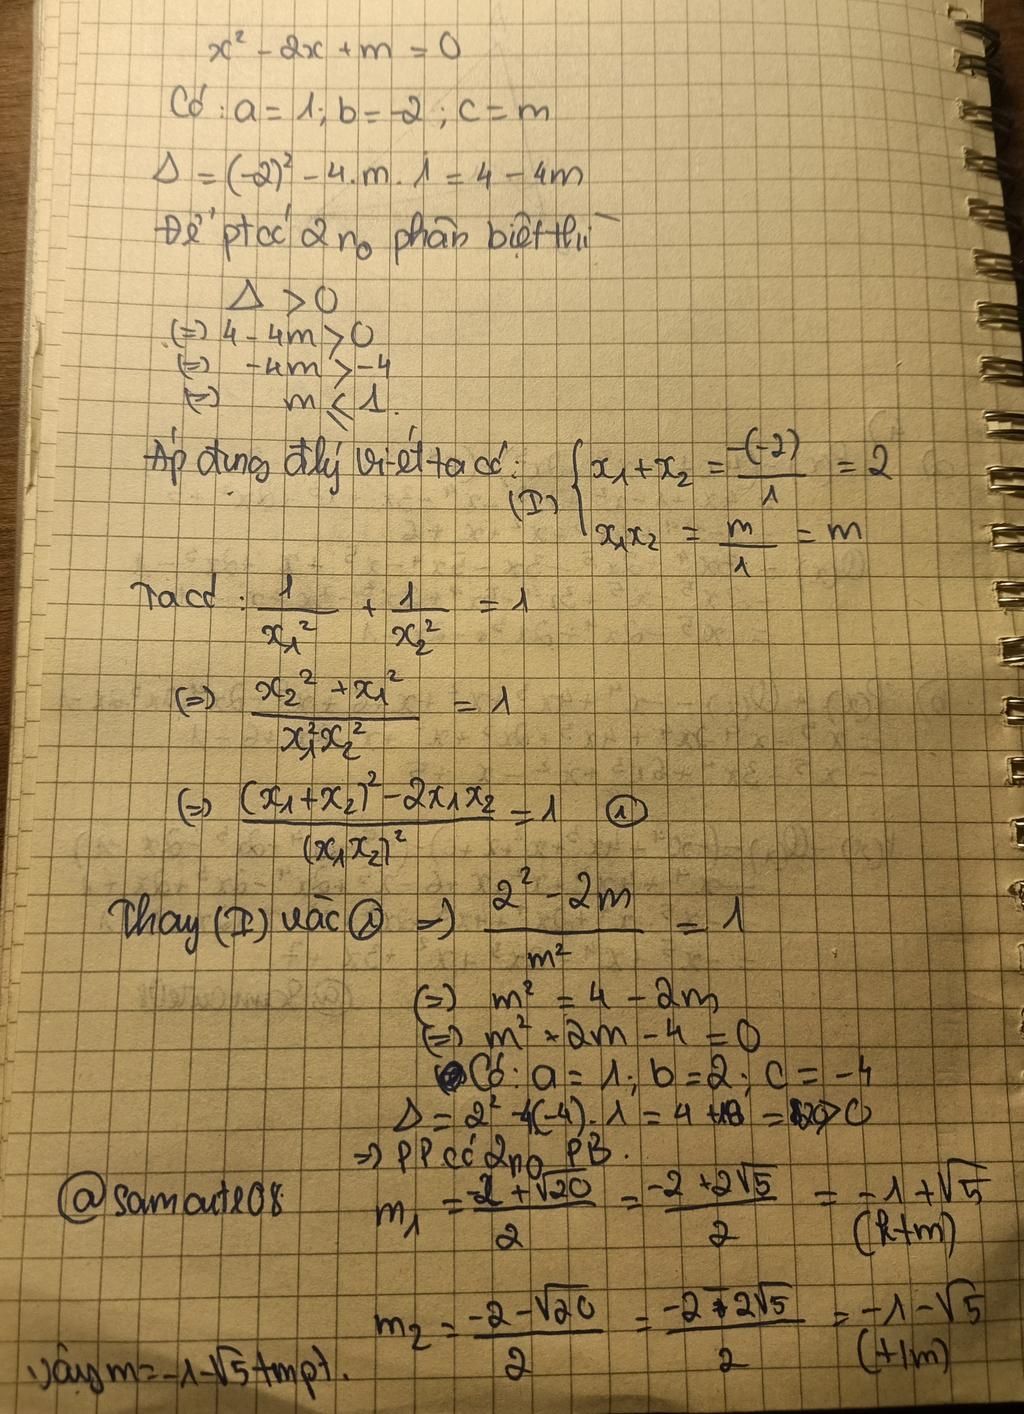 x² - 2x + m = 0
Có: a = 1; b = -2; c = m
Δ = (-2)² - 4.m.1 = 4 - 4m
Để pt có 2 no phân biệt thì
Δ > 0
(=) 4 - 4m > 0
(=) -4m > -4
(=) m < 1.
Áp dụng đlý viét ta có: (I) { x₁ + x₂ = -(-2)/1 = 2
x₁x₂ = m/1 = m
Ta có: 1/x₁² + 1/x₂² = 1
(=) (x₂² + x₁²)/(x₁²x₂²) = 1
(=) ((x₁ + x₂)² - 2x₁x₂)/(x₁x₂)² = 1 ①
Thay (I) vào ① =) (2² - 2m)/m² = 1
(=) m² = 4 - 2m
(=) m² + 2m - 4 = 0
Có: a = 1; b = 2; c = -4
Δ = 2² - 4(-4).1 = 4 + 16 = 20 > 0
=) PP có 2 no PB.
@samcute08
m₁ = (-2 + √20)/2 = (-2 + 2√5)/2 = -1 + √5 (ktm)
m₂ = (-2 - √20)/2 = (-2 - 2√5)/2 = -1 - √5 (tm)
Vậy m = -1 - √5 tmpt.